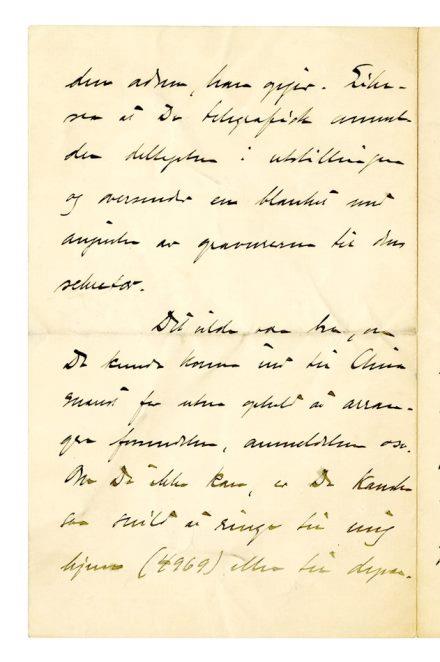 den adres, han opgir. Like-
saa at De telegrafisk anmel-
der deltagelse i utstillingen
og oversender en blanket med
angivelse av gravurerne til dens
sekretær.
Det vilde være bra, om
De kunde komme ind til Chria
snarest for uten ophold at arran-
gere forsendelsen, anmeldelsen osv.
Om De ikke kan, er De kanske
saa snild at ringe til mig
hjem (4969) eller til depar-